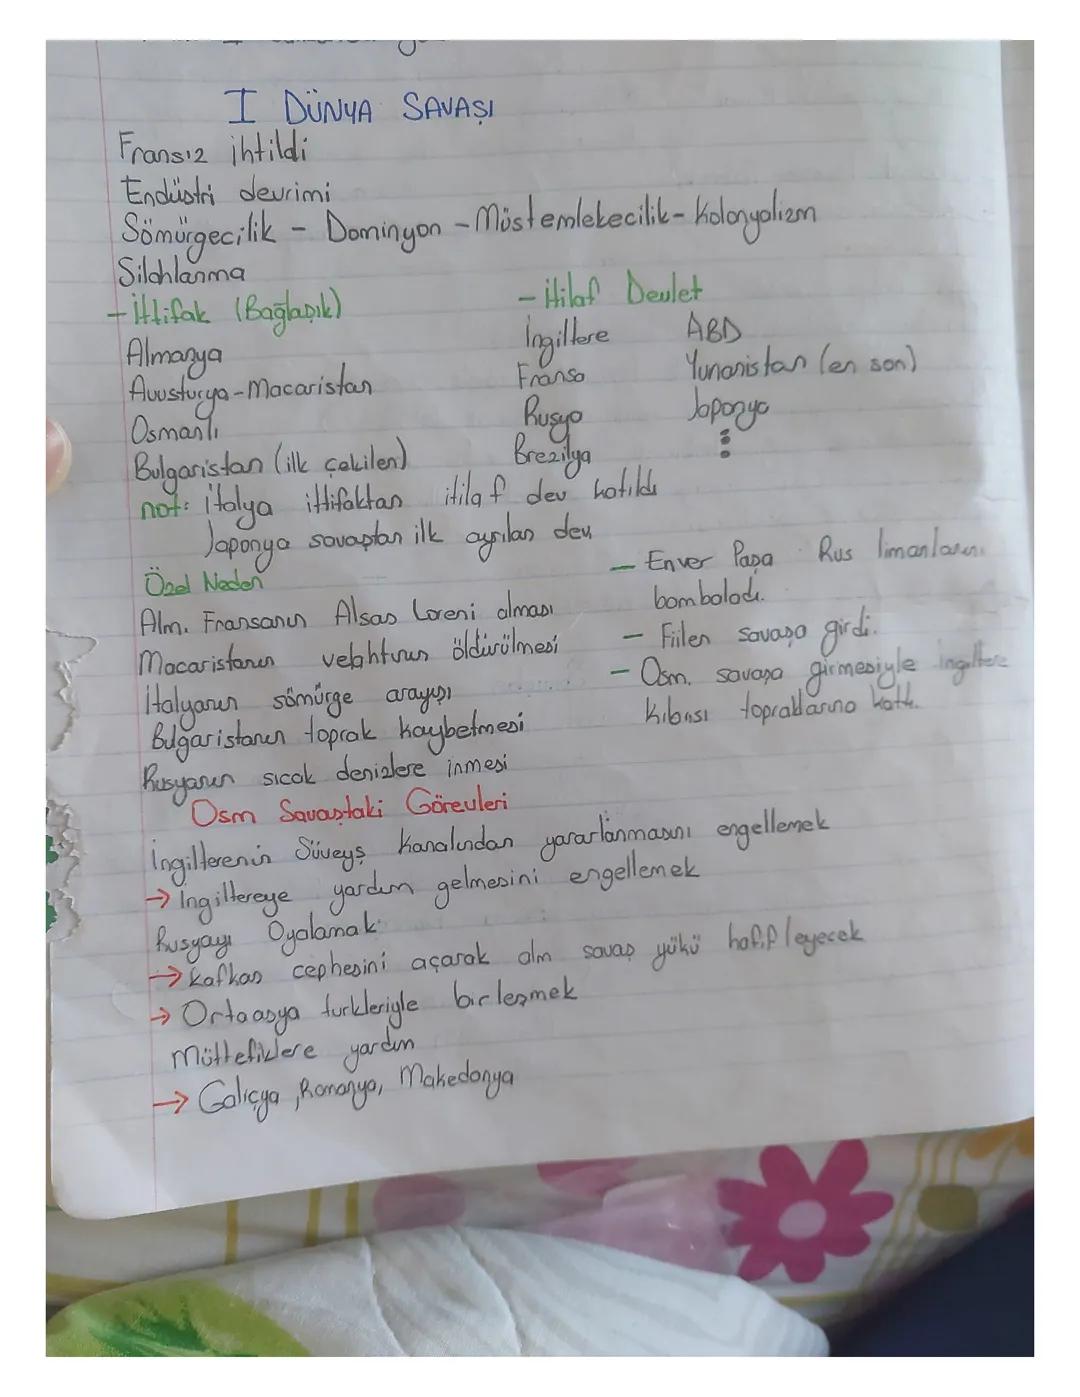 I DÜNYA SAVAŞI
Fransız ihtildi
Endüstri devrimi
Sömürgecilik - Dominyon - Müstemlekecilik - Kolonyalizm
Silahlanma
- İttifak (Bağlaşık)
Almanya
Avusturya-Macaristan
Osmanlı
Bulgaristan (ilk çekilen)
- İtilaf Devlet
İngiltere
Fransa
Rusya
Brezilya
ABD
Yunanistan (en son)
Japonya
not: italya ittifaktan itilaf dev katıldı
Japonya savaştan ilk ayrılan dev
Özel Neden
Alm. Fransanın Alsas Loreni alması
Macaristanın velahtının öldürülmesi
İtalyanın sömürge arayışı
Bulgaristanın toprak kaybetmesi
Rusyanın sıcak denizlere inmesi
- Enver Paşa Rus limanlarını
bombaladı.
- Fiilen savaşa girdi.
- Osm. savaşa girmesiyle ingiltere
Kıbrısı topraklarına kattı.
Osm Savaştaki Görevleri
İngilterenin Süveyş Kanalından yararlanmasını engellemek
→ İngiltereye yardım gelmesini engellemek
Rusyayı Oyalamak
→ Kafkas cephesini açarak alm savaş yükü hafifleyecek
→ Ortaasya türkleriyle birleşmek
Müttefiklere yardım
→ Galiçya, Romanya, Makedonya